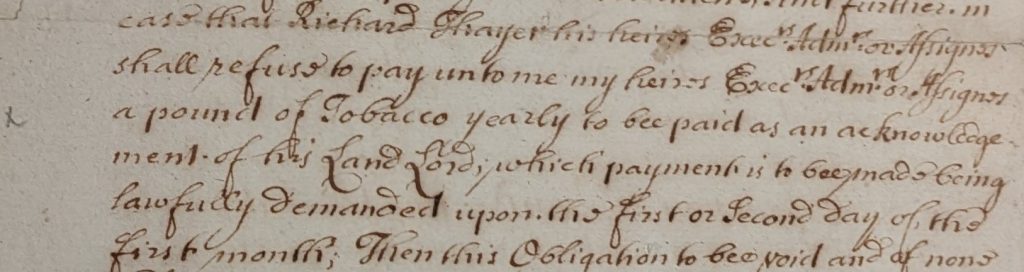 further in
case that Richard Thayer his heires Execrs Admrs or Assignes
shall refuse to pay unto me my heires Execrs Admrs or Assignes
a pound of Tobacco yearly to bee paid as an acknowledge-
ment of his Land Lord; which payment is to bee made being
lawfully demanded upon the first or second day of the
first month; Then this Obligation to bee void and of none